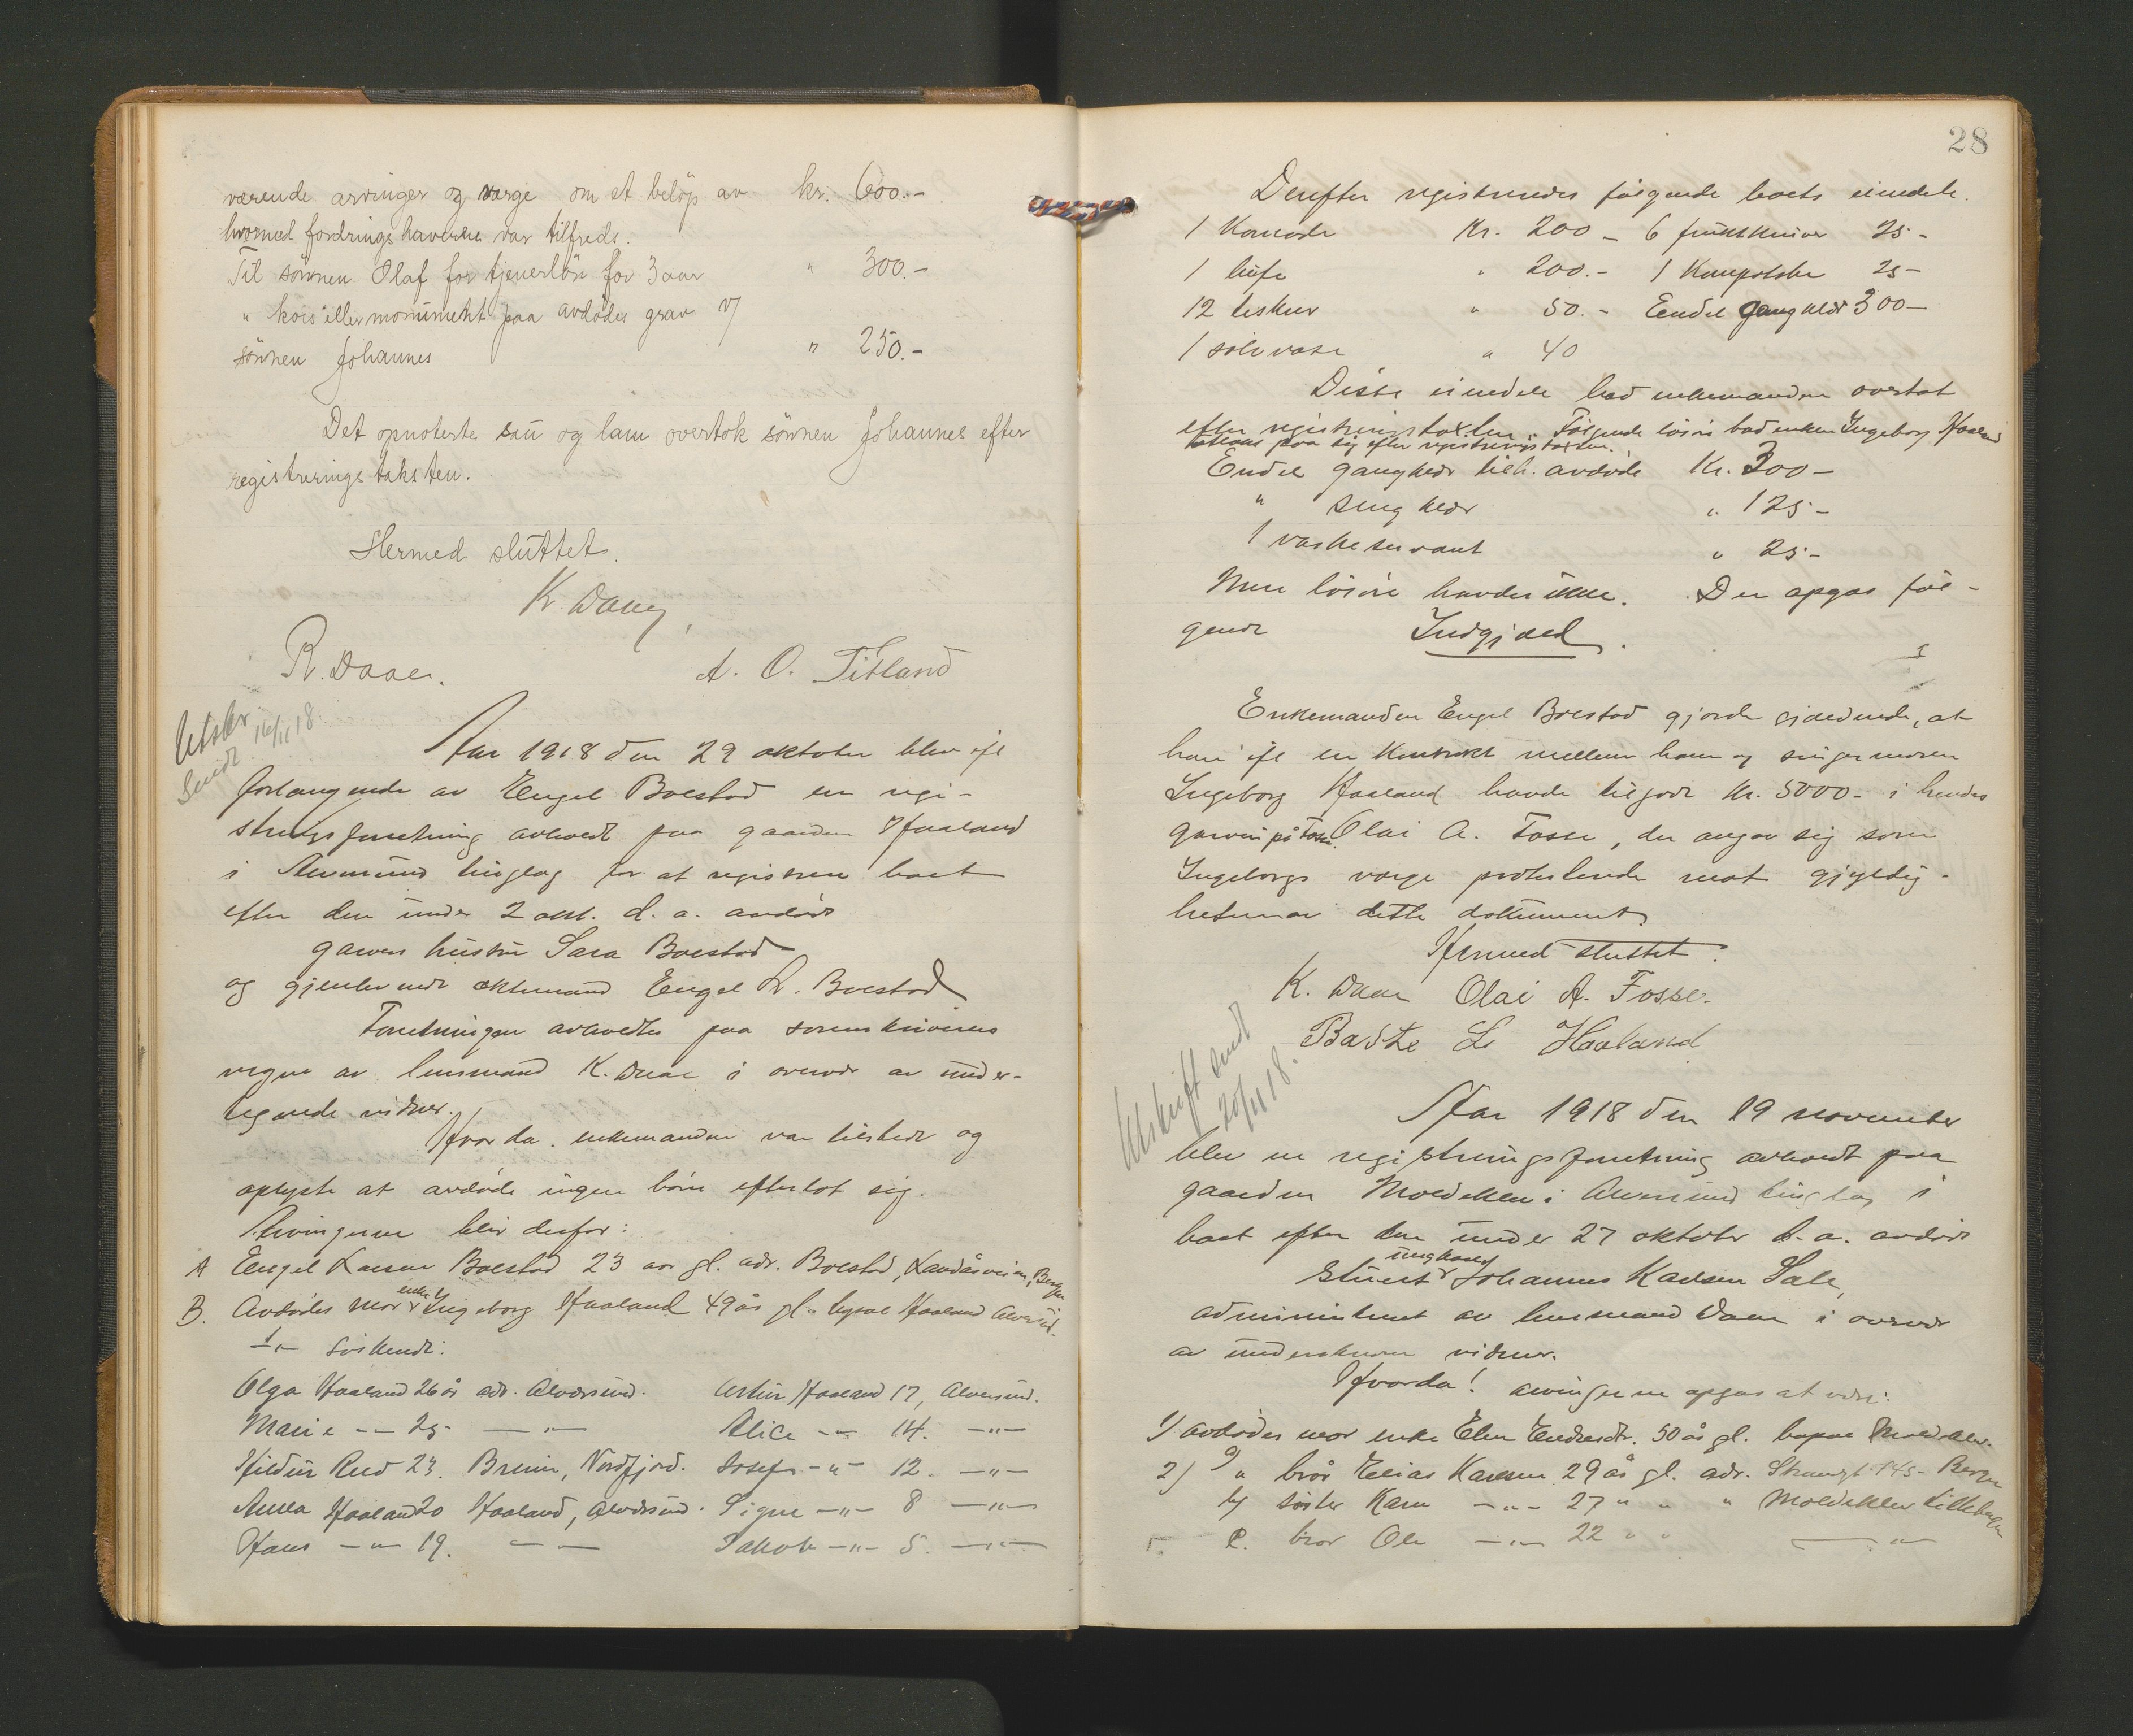 værende arvinger og værge om et beløp av kr. 600.-
hvormed fordringshaverne var tilfreds.
Til sønnen Olaf for tjenerløn for 3 aar " 300.-
" kors eller monument paa avdødes grav v/
sønnen Johannes " 250.-
Det opnoterte sau og lam overtok sønnen Johannes efter
registreringstaksten.
Hermed sluttet.
K. Daae
R. Daae. A. O. Titland
Utskr.
Sendt 16/11 18.
Aar 1918 den 29 oktober blev efl
forlangende av Engel Boestad en regi-
streringsforretning avholdt paa gaarden Haaland
i Alversund tinglag for at registrere boet
efter den under 2 okt. d. a. avdøde
garvers hustru Sara Boestad
og gjenlevende ektemand Engel L. Boestad
Forretningen avholdtes paa sorenskriverens
vegne av lensmand K. Daae i overvær av under-
tegnede vidner.
Hvorda. enkemanden var tilstede og
oplyste at avdøde ingen børn efterlot sig.
Arvingerne blir derfor:
A Engel Larsen Boestad 23 aar gl. adr. Boestad, Landåsveien, Bergen
B. Avdødes mor enke Ingeborg Haaland 49 år gl. bopæl Haaland Alversund.
-"- søskende:
Olga Haaland 26 år adr. Alversund. Artur Haaland 17, Alversund.
Marie -"- 25 -"- Alice -"- 14. -"-
Hildur Reed 23. Breim, Nordfjord. Josef -"- 12. -"-
Anna Haaland 20 Haaland, Alversund. Signe -"- 8 -"-
Hans -"- 19. -"- Jakob -"- 5. -"-
28
Derefter registreredes følgende boets eiendele.
1 Komode Kr. 200 - 6 fruktkniver 25 -
1 " 200.- 1 25 -
12 teskeer " 50.- Endel gangklær 300 -
1 sølvvase " 40
Disse eiendele bad enkemanden overtat
efter registreringstaxten. Følgende løsøre bad enken Ingeborg Haaland
utlagt paa sig efter registreringstaxten.
Endel gangklær tilh. avdøde Kr. 300 -
" sengklær " 125 -
1 vaskeservant " 25.-
Mere løsøre havdes ikke. Der opgas føl-
gende Indgjæld.
Enkemanden Engel Boestad gjorde gjældende, at
han efl en kontrakt mellem ham og svigermoren
Ingeborg Haaland havde tilgode kr. 5000 - i hendes
garveri på Fosse. Olai A. Fosse, der angav sig som
Ingeborgs verge protesterede mot gyldig-
heten av dette dokument
Hermed sluttet.
K. Daae Olai A. Fosse.
Baste L. Haaland
Utskrift sendt
20/11 18.
Aar 1918 den 19 november
blev en registreringsforretning avholdt paa
gaarden Moldekleiv i Alversund tinglag i
boet efter den under 27 oktober d. a. avdøde
ungkarl
Johannes Karlsen Sale,
administreret av lensmand Daae i overvær
av underskrevne vidner.
Hvorda! arvingerne opgas at være:
1) avdødes mor enke Elen Endresdtr. 50 år gl. bopæl Moldeklev.
2) a) " brør Elias Karlsen 29 år gl. adr. Strandgt 145 - Bergen
b) søster Karen -"- 27 " " " Moldeklev Litlebergen
c. bror Ole -"- 22 " " -"-